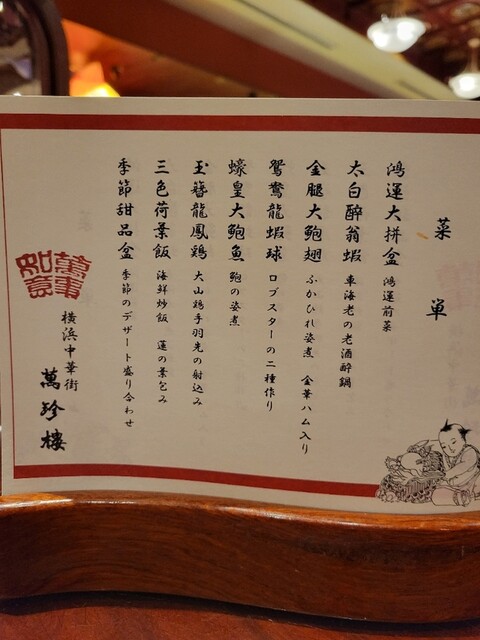 菜 単
鴻運大拼盆 鴻運前菜
太白醉翁蝦 車海老の老酒醉鍋
金腿大鮑翅 ふかひれ姿煮 金華ハム入り
鴛鴦龍蝦球 ロブスターの二種作り
蠔皇大鮑魚 鮑の姿煮
玉簪龍鳳鶏 大山鶏手羽先の射込み
三色荷葉飯 海鮮炒飯 蓮の葉包み
季節甜品盆 季節のデザート盛り合わせ
萬事如意
横浜中華街
萬珍樓